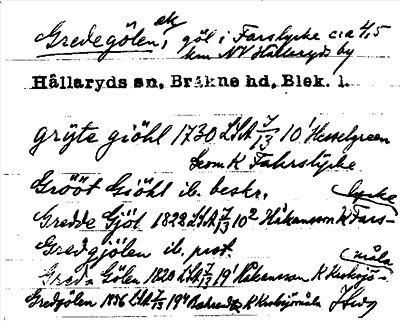 Gredegölen, ek göl i Farslycke c:a 4,5
km NV Hallaryds by
Hällaryds sn, Bräkne hd, Blek. l.
gryte giöhl 1730 LSA 7/13 10' Hesselgreen
Leom K Fahrslycke
Grööt Giöhl ib. beskr.
Gredde Gjöl 1822 LSA 7/13 10² Håkansson K Fars-
lycke
Gredgjölen ib. prot.
Greda Gölen 1820 LSA 7/13 19' Håkansson K Kroksjö-
måla
Gredgölen 1836 LSA 7/13 19⁴ K Kroksjömåla